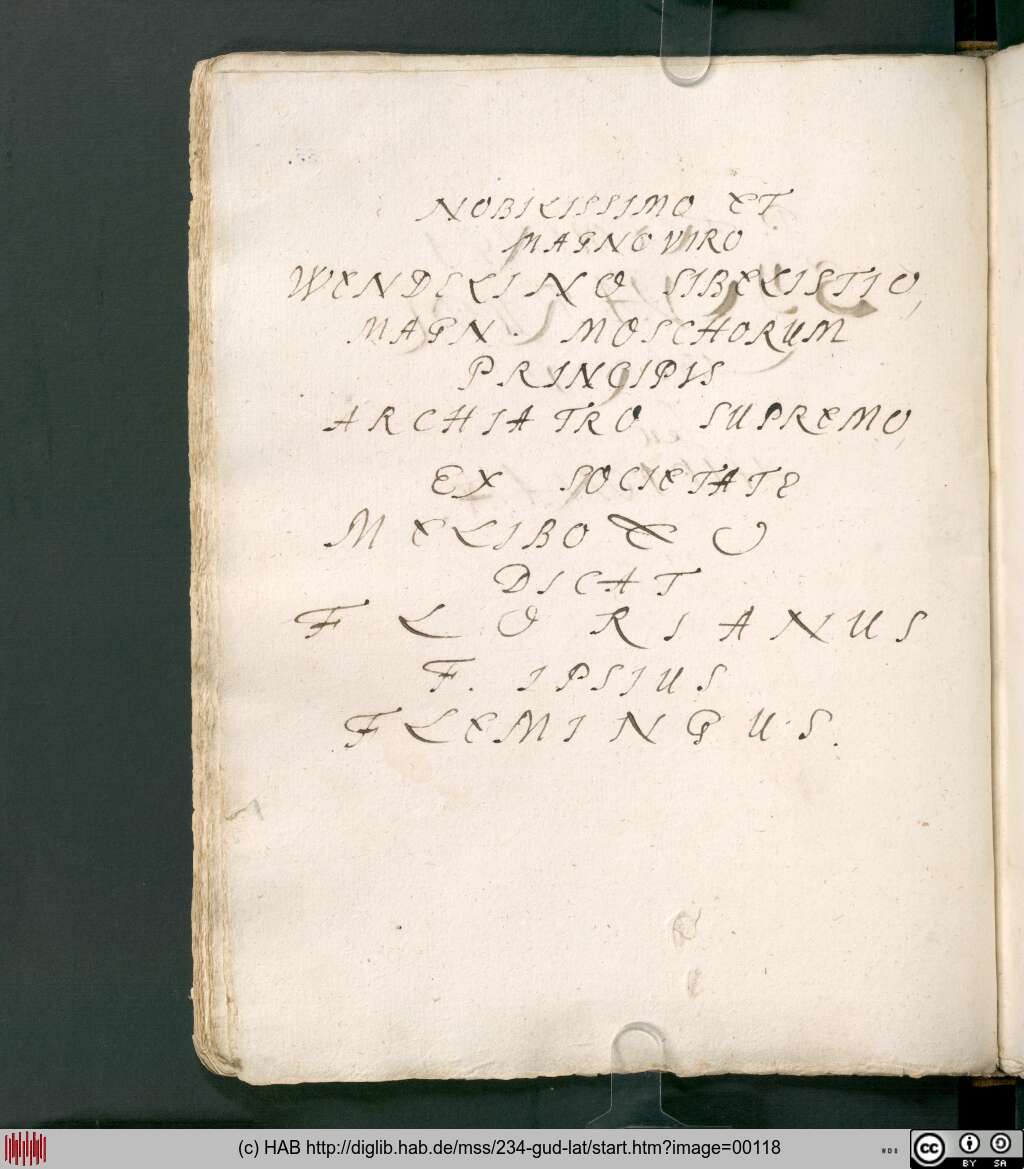 NOBILISSIMO ET
MAGNO VIRO
WENDELINO SIBELISTIO,
MAGN. MOSCHORUM
PRINCIPIS
ARCHIATRO SUPREMO,
EX SOCIETATE
MELIBOEO
DICAT
FLORIANUS
F. IPSIUS
FLEMINGUS.
(c) HAB http://diglib.hab.de/mss/234-gud-lat/start.htm?image=00118
WDB
cc BY SA